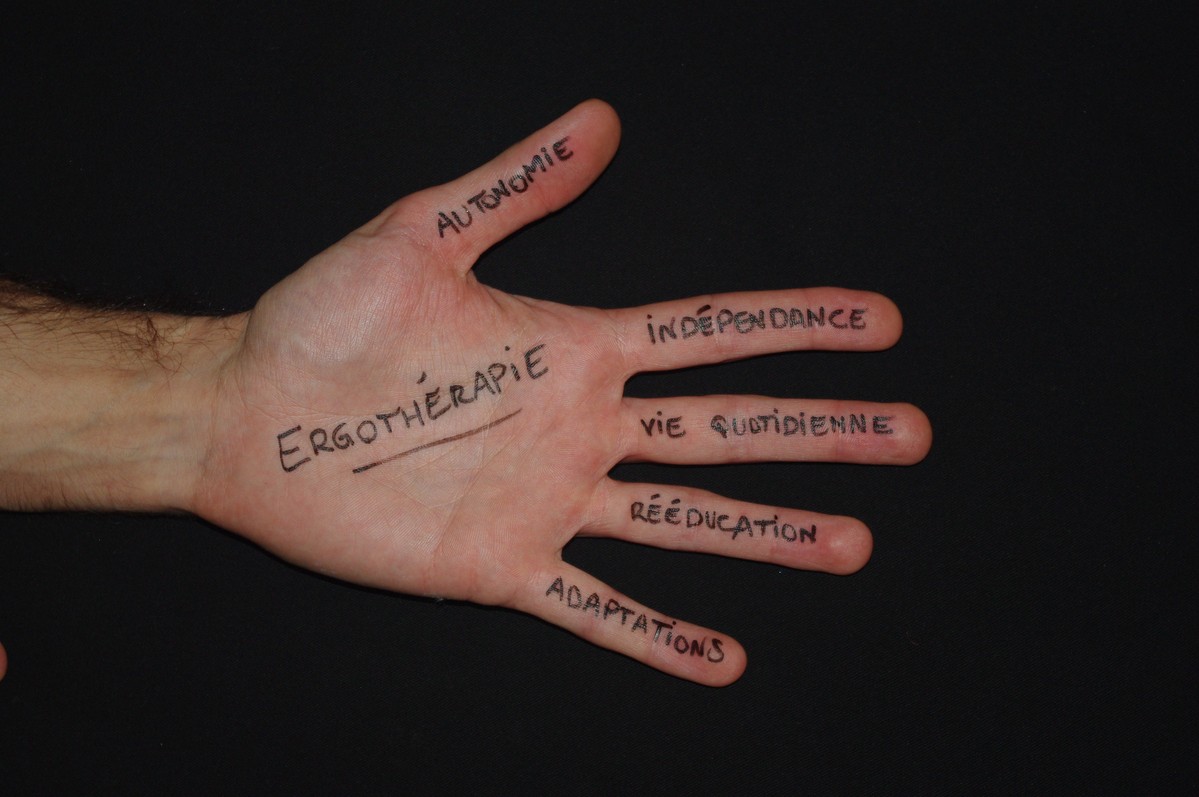 AUTONOMIE
INDÉPENDANCE
ERGOTHÉRAPIE
VIE QUOTIDIENNE
RÉÉDUCATION
ADAPTATIONS